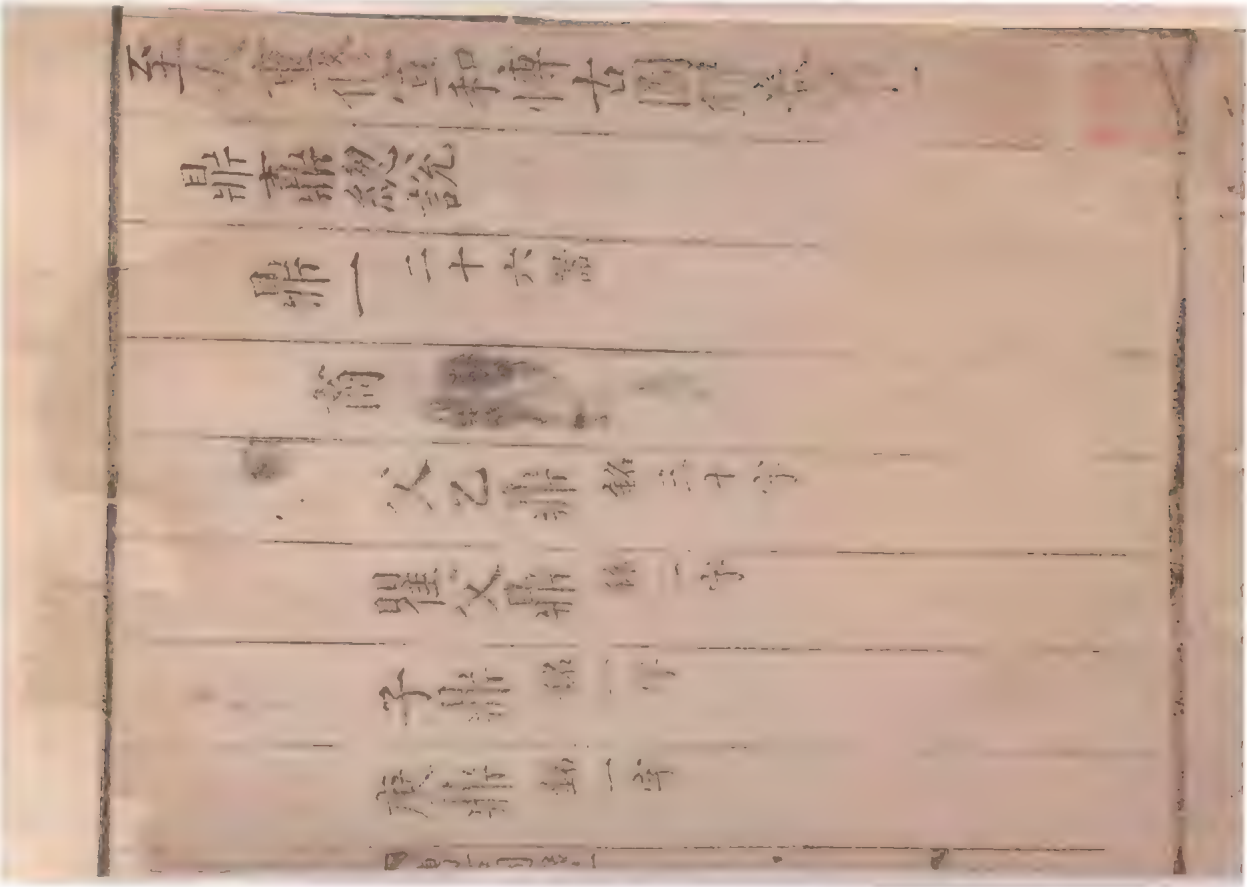 至大重修宣和博古圖錄卷
鼎鼐總說
鼎一 二十六器
商
父乙鼎 銘二十字
瞿父鼎 銘二字
子鼎 銘一字
庚鼎 銘一字